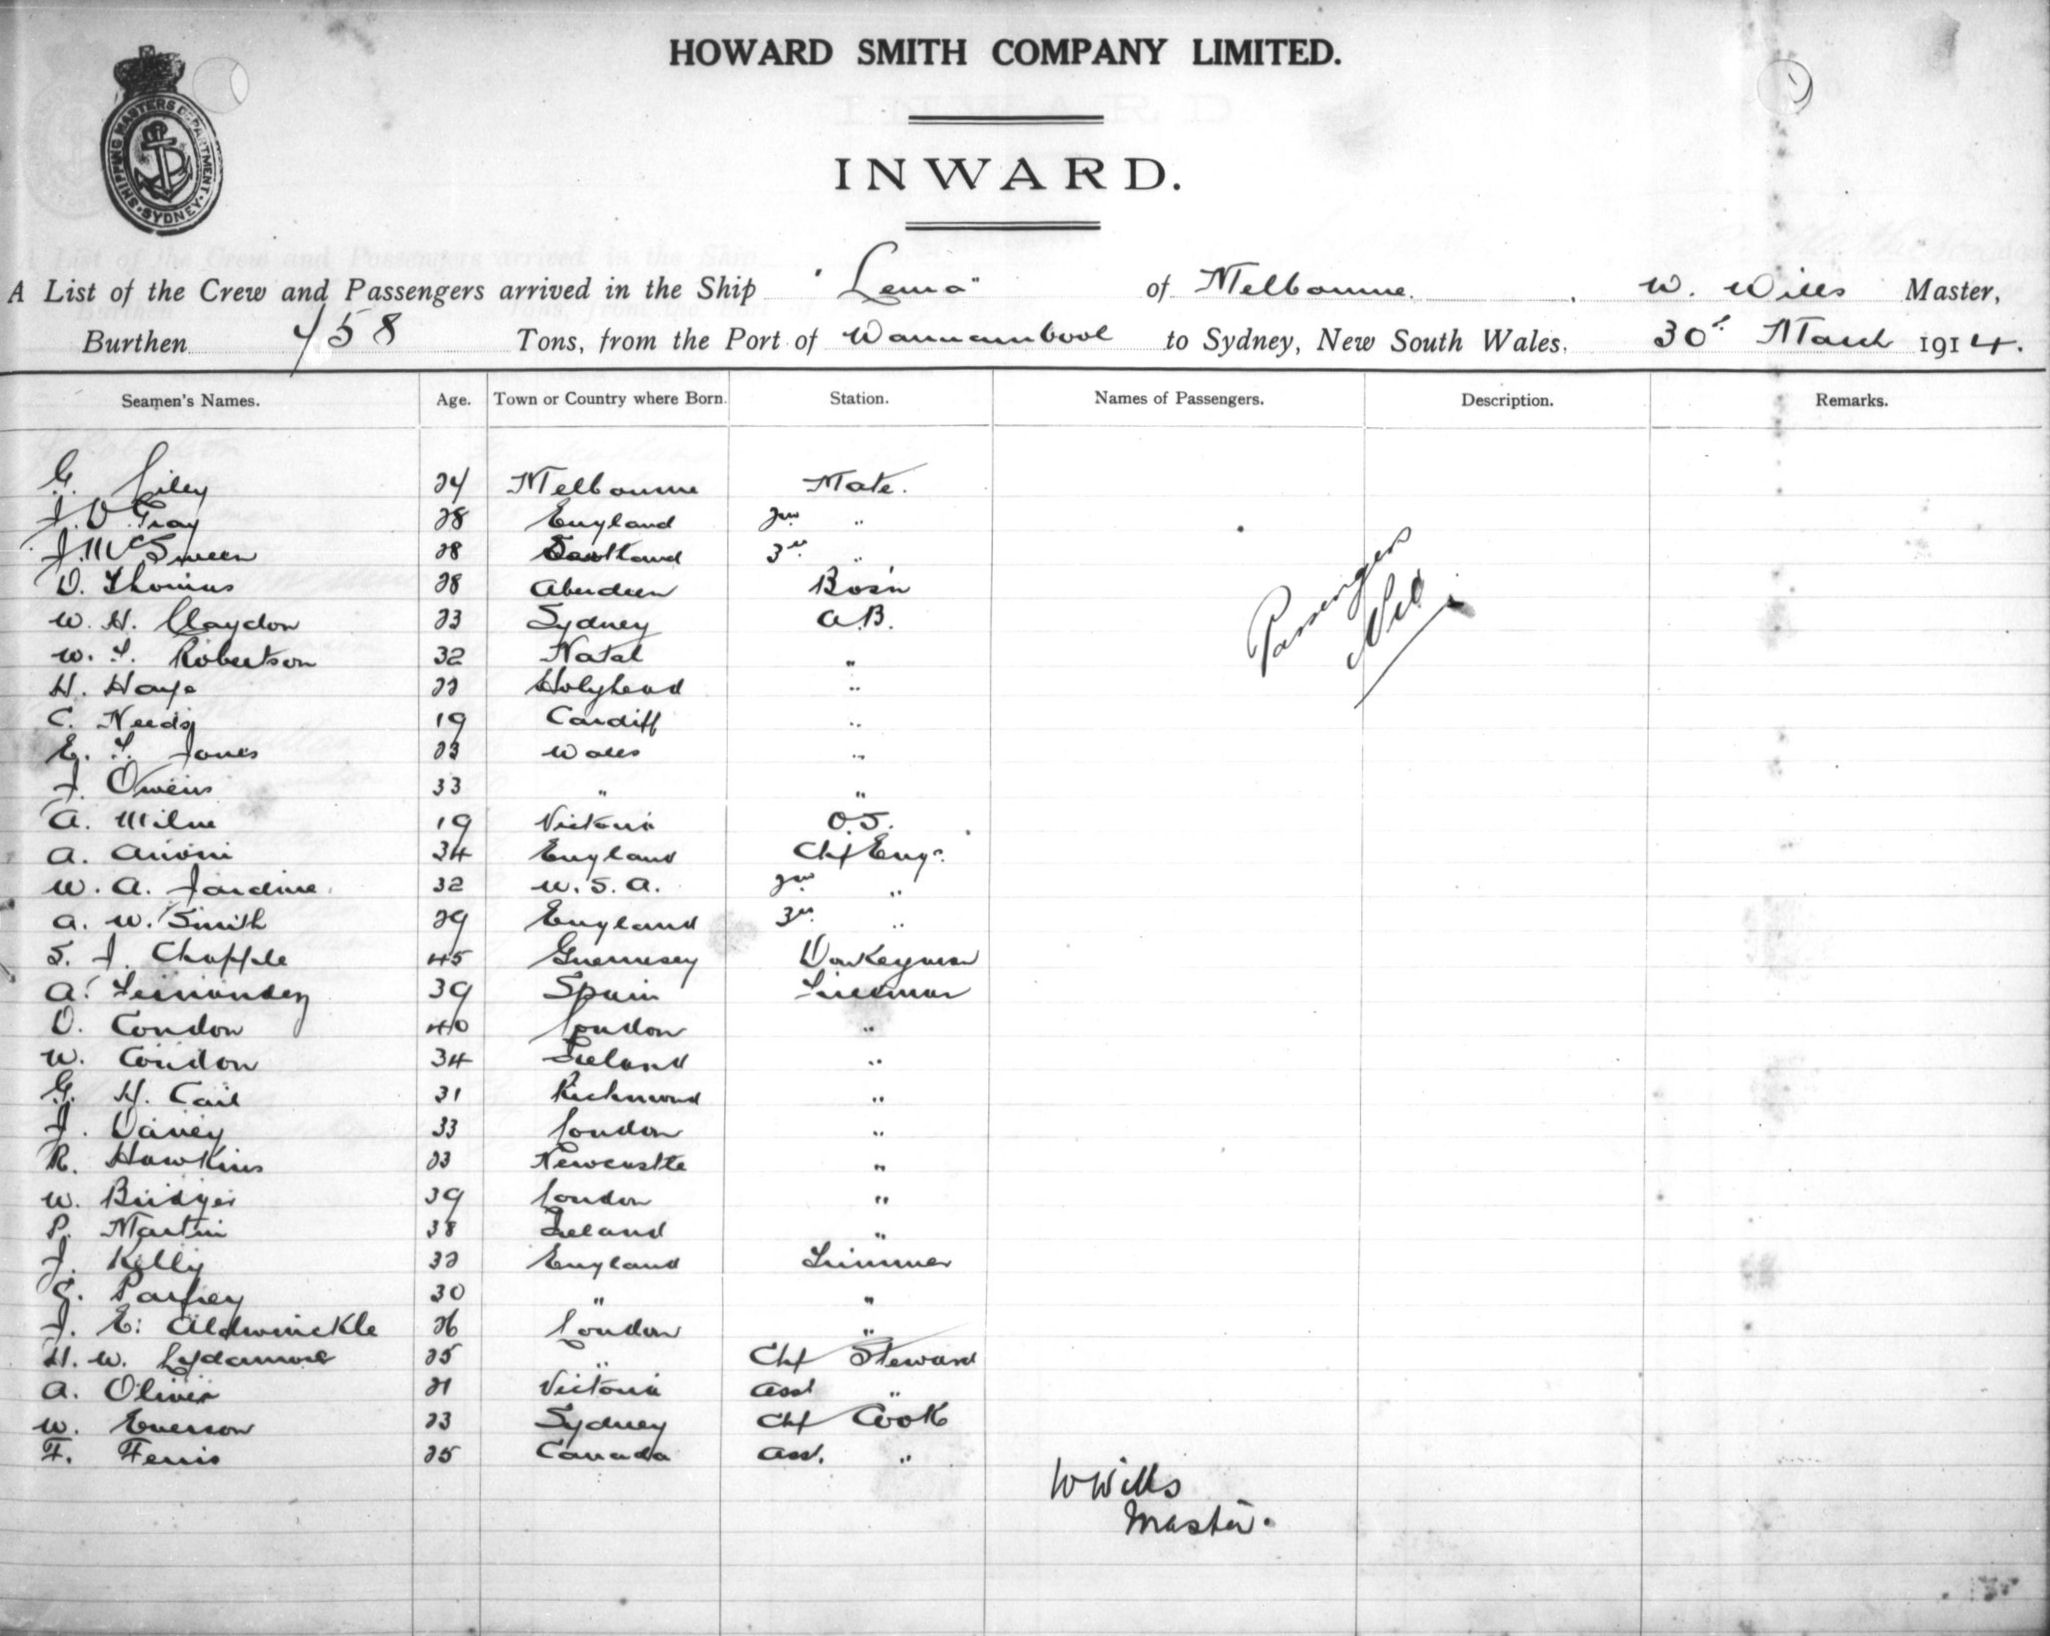 HOWARD SMITH COMPANY LIMITED.
SHIPPING MASTERS DEPARTMENT SYDNEY
INWARD.
A List of the Crew and Passengers arrived in the Ship "Lema" of Melbourne. W. Wills Master,
Burthen 458 Tons, from the Port of Warrnambool to Sydney, New South Wales. 30th March 1914.
Seamen's Names. Age. Town or Country where Born. Station. Names of Passengers. Description. Remarks.
G. Liley 24 Melbourne Mate.
J. D. Gray 28 England 2nd "
J. McSween 28 Scotland 3rd "
D. Thomas 28 Aberdeen Bos'n
W. H. Claydon 23 Sydney A.B.
W. T. Robertson 32 Natal "
H. Haye 22 Holyhead "
C. Needs 19 Cardiff "
E. T. Jones 23 Wales "
J. Owens 33 " "
A. Milne 19 Victoria O.S.
A. 34 England Chf Engr.
W. A. Jardine 32 U.S.A. 2nd "
A. W. Smith 29 England 3rd "
S. J. Chapple 45 Guernsey Donkeyman
A. Fernandez 39 Spain Fireman
D. Condon 40 London "
W. Condon 34 Ireland "
G. H. Cail 31 Richmond "
J. Davey 33 London "
R. Hawkins 23 Newcastle "
W. Bridger 39 London "
P. Martin 38 Ireland "
J. Kelly 32 England Trimmer
G. Parfrey 30 " "
J. E. Aldwinckle 26 London "
H. W. Lydamore 25 " Chf Steward
A. Oliver 21 Victoria Asst "
W. Everson 23 Sydney Chf Cook
F. Ferris 25 Canada Asst. "
Passengers
Nil
W Wills
Master.